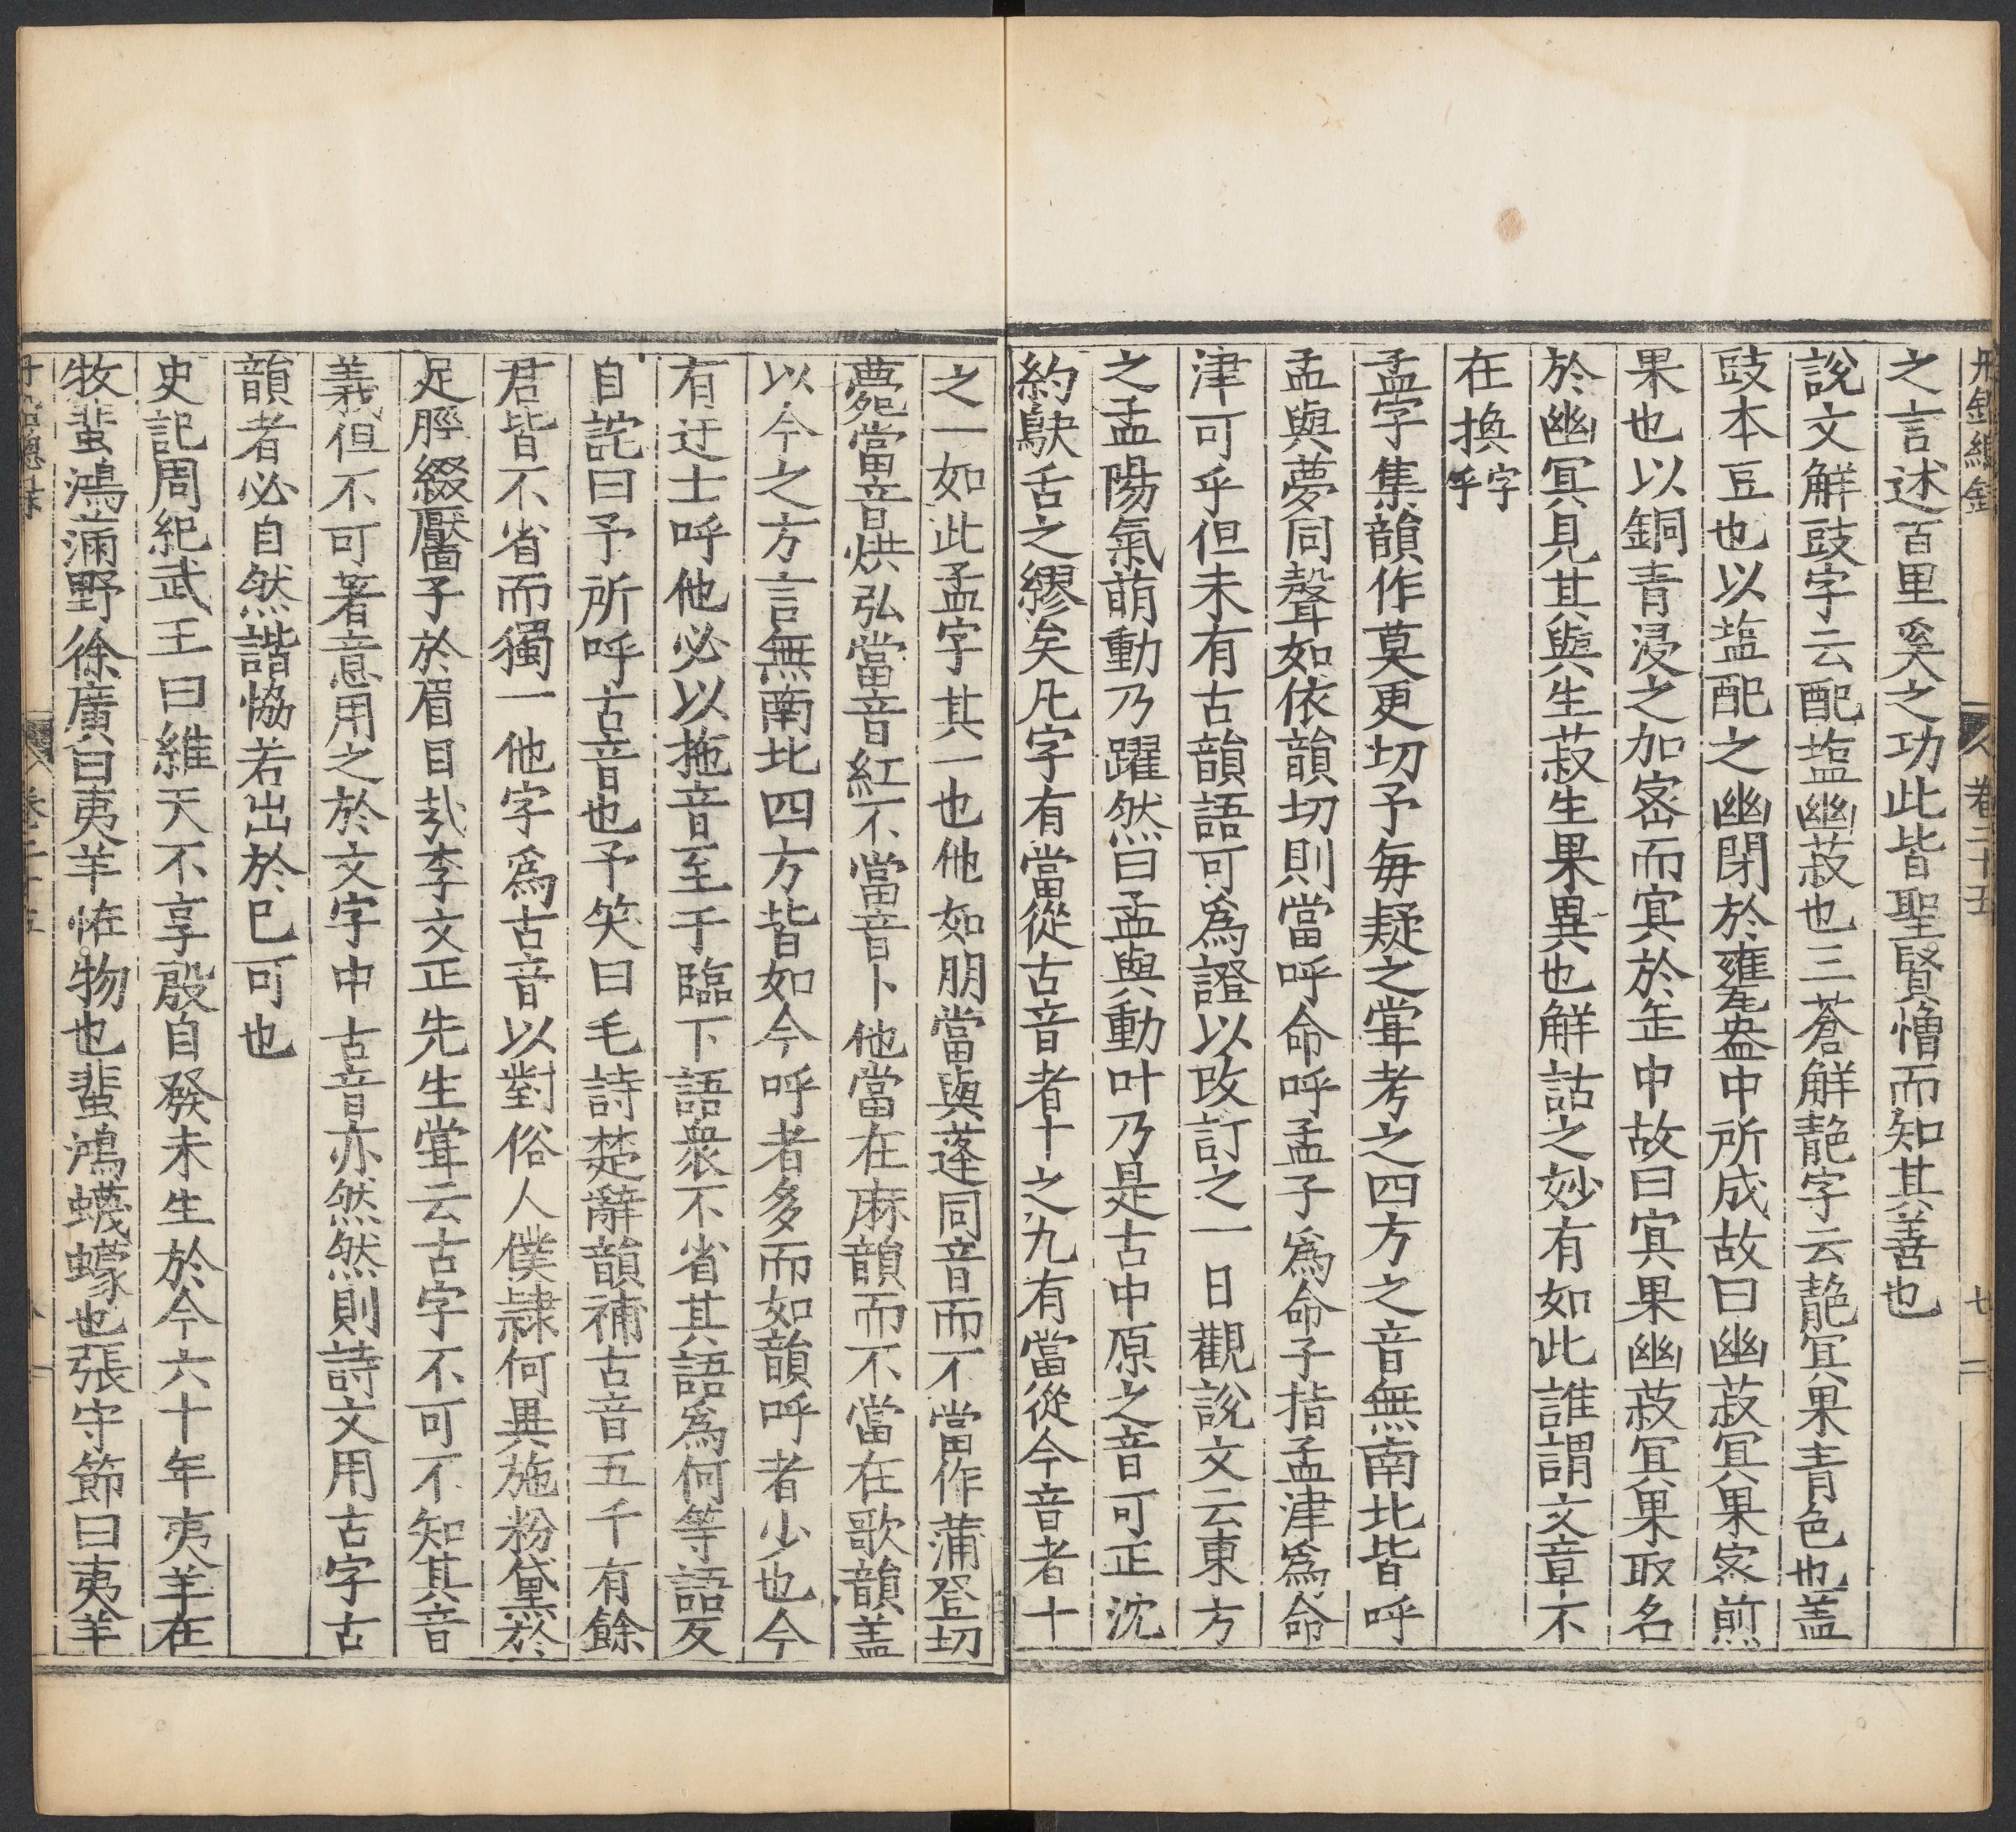 之言述百里奚之功此皆聖賢憎而知其善也
說文解豉字云配塩幽菽也三蒼解靘字云靘冥果青色也盖
豉本豆也以塩配之幽閉於甕盎中所成故曰幽菽冥果宻煎
果也以銅青浸之加宻而冥於缶中故曰冥果幽菽冥果取名
於幽冥見其與生菽生果異也解詁之妙有如此誰謂文章不
在換字乎
孟字集韻作莫更切予每疑之甞考之四方之音無南北皆呼
孟與夢同聲如依韻切則當呼命呼孟子爲命子指孟津爲命
津可乎但未有古韻語可爲證以攺訂之一日觀說文云東方
之孟陽氣萌動乃躍然曰孟與動叶乃是古中原之音可正沈
約鴃舌之繆矣凡字有當從古音者十之九有當從今音者十
之一如此孟字其一也他如朋當與蓬同音而不當作蒲登切
薨當音烘弘當音紅不當音卜他當在麻韻而不當在歌韻盖
以今之方言無南北四方皆如今呼者多而如韻呼者少也今
有迂士呼他必以拖音至于臨下語衆不省其語爲何等語反
自詫曰予所呼古音也予笑曰毛詩楚辭韻補古音五千有餘
君皆不省而獨一他字爲古音以對俗人僕隷何異施粉黛於
足脛綴靨子於眉目㢤李文正先生甞云古字不可不知其音
義但不可著意用之於文字中古音亦然然則詩文用古字古
韻者必自然諧恊若出於已可也
史記周紀武王曰維天不享殷自發未生於今六十年夷羊在
牧蜚鴻滿野徐廣曰夷羊恠物也蜚鴻蠛蠓也張守節曰夷羊